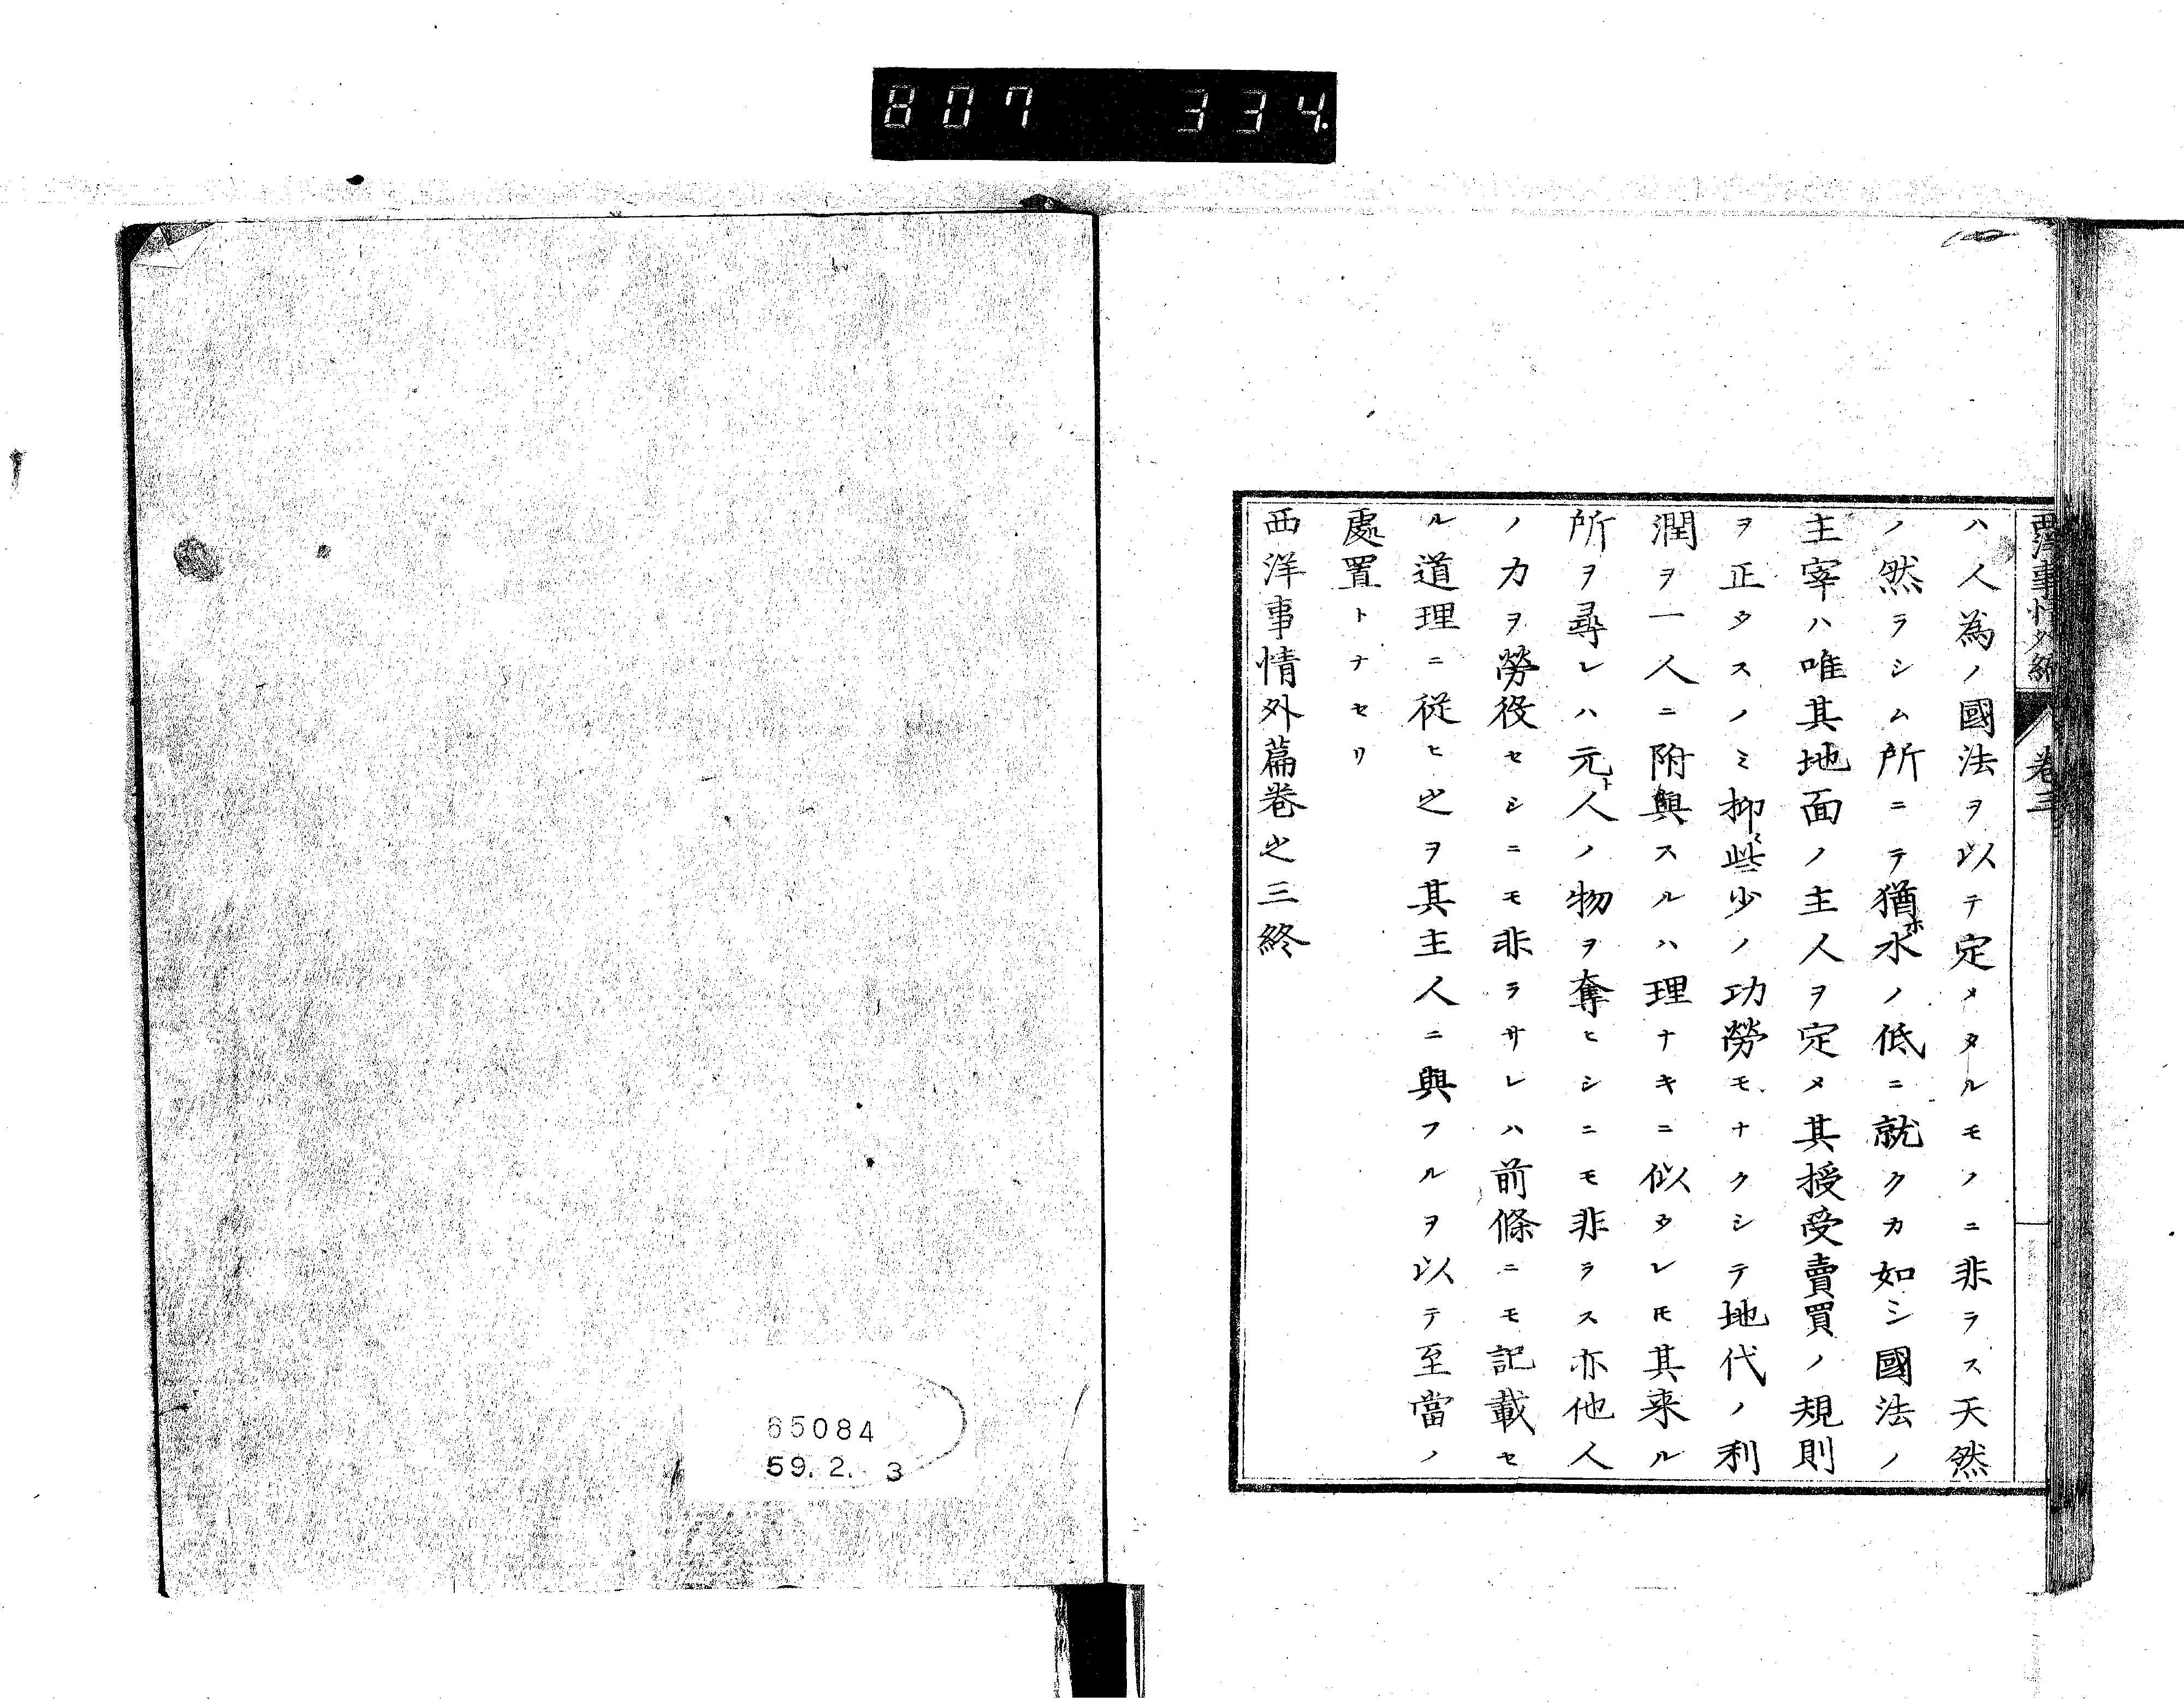 807 334.
西洋事情外編 卷三
ハ人為ノ國法ヲ以テ定メタルモノニ非ラス天然
ノ然ラシム所ニテ猶ホ水ノ低ニ就クカ如シ國法ノ
主宰ハ唯其地面ノ主人ヲ定メ其授受賣買ノ規則
ヲ正タスノミ抑〻些少ノ功勞モナクシテ地代ノ利
潤ヲ一人ニ附與スルハ理ナキニ似タレ𪜈其来ル
所ヲ尋レハ元ト人ノ物ヲ奪ヒシニモ非ラス亦他人
ノ力ヲ勞役セシニモ非ラサレハ前條ニモ記載セ
ル道理ニ從ヒ之ヲ其主人ニ與フルヲ以テ至當ノ
處置トナセリ
西洋事情外篇卷之三終
65084
59.2. 3